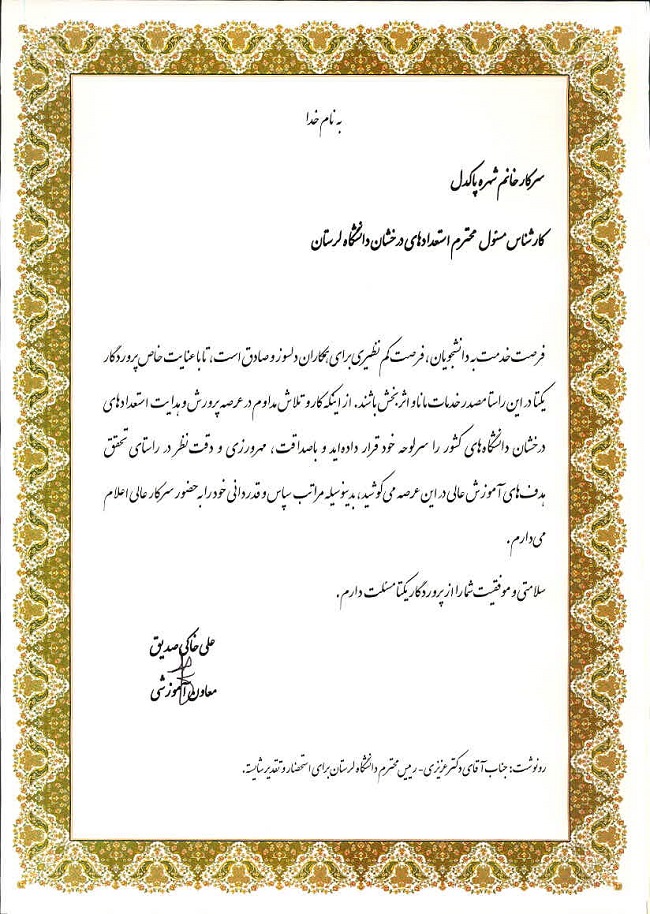 به نام خدا
سرکار خانم شهره پاکدل
کارشناس مسئول محترم استعدادهای درخشان دانشگاه لرستان
فرصت خدمت به دانشجویان، فرصت کم نظیری برای همکاران دلسوز و صادق است، تا با عنایت خاص پروردگار
یکتا در این راستا مصدر خدمات مانا و اثر بخش باشند. از اینکه کار و تلاش مداوم در عرصه پرورش و هدایت استعدادهای
درخشان دانشگاه های کشور را سرلوحه خود قرار داده اید و با صداقت، مهرورزی و دقت نظر در راستای تحقق
هدف های آموزش عالی در این عرصه می کوشید، بدینوسیله مراتب سپاس و قدردانی خود را به حضور سرکار عالی اعلام
می دارم.
سلامتی و موفقیت شما را از پروردگار یکتا مسئلت دارم.
علی خاکی صدیق
معاون آموزشی
رونوشت: جناب آقای دکتر عزیزی- رییس محترم دانشگاه لرستان برای استحضار و تقدیر شایسته.